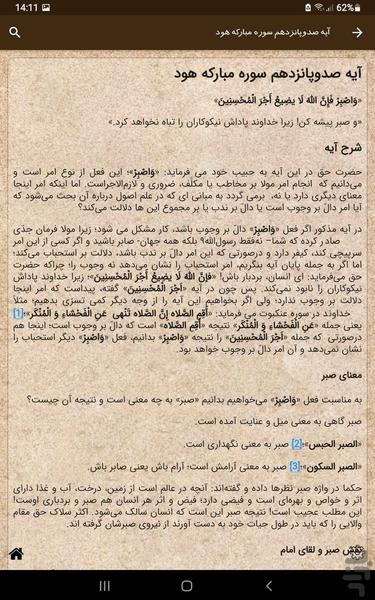 14:11
62%
آیه صدوپانزدهم سوره مبارکه هود
آیه صدوپانزدهم سوره مبارکه هود
«وَاصْبِرْ فَإِنَّ اللّهَ لَا یضِیعُ أَجْرَ الْمُحْسِنِینَ»
«و صبر پیشه کن! زیرا خداوند پاداش نیکوکاران را تباه نخواهد کرد.»
شرح آیه
حضرت حق در این آیه به حبیب خود می فرماید: «وَاصْبِرْ»؛ این فعل از نوع امر است و
می‌دانیم که انجام امر مولا بر مخاطب یا مکلّف، ضروری و لازم‌الاجراست. اما اینکه امر اینجا
معنای دیگری دارد یا نه، برمی گردد به مبانی ای که در علم اصول درباره آن بحث می‌شود که
آیا امر دالّ بر وجوب است یا دالّ بر ندب یا بر مجموع این ها دلالت می‌کند؟
در آیه مذکور اگر فعل «وَاصْبِرْ» دالّ بر وجوب باشد، کار مشکل می شود؛ زیرا مولا فرمان جدّی
صادر کرده که شما– نه‌فقط رسول‌الله؟ بلکه همه جهان- صابر باشید و اگر کسی از این امر
سرپیچی کند، کیفر دارد و درصورتی که این امر دالّ بر ندب باشد، دلالت بر استحباب می‌کند؛
اما اگر به جمله پایان آیه بنگریم، امر استحباب را نشان می‌دهد نه وجوب را؛ چراکه حضرت
حق می‌فرماید: ای انسان، بردبار باش! «فَإِنَّ اللهَ لَا یضِیعُ أَجْرَ الْمُحْسِنِینَ»؛ زیرا خداوند پاداش
نیکوکاران را نابود نمی‌کند. پس چون در آیه «أَجْرَ الْمُحْسِنِینَ» گفته، پیداست که امر اینجا
دلالت بر وجوب ندارد؛ ولی اگر بخواهیم این آیه را از وجه دیگر کمی تسرّی بدهیم؛ مثلاً
خداوند در سوره عنکبوت می فرماید: «أَقِمِ الصَّلَاه إِنَّ الصَّلَاه تَنْهَى عَنِ الْفَحْشَاءِ وَ الْمُنْكَرِ»؛[1]
یعنی جمله «عَنِ الْفَحْشَاءِ وَ الْمُنْكَرِ» نتیجه «أَقِمِ الصَّلَاه» است که دالّ بر وجوب است؛ اینجا هم
درصورتی که جمله «أَجْرَ الْمُحْسِنِینَ» را نتیجه «وَاصْبِرْ» بدانیم، فعل «وَاصْبِرْ» دیگر استحباب را
نشان نمی‌دهد و آن امر دالّ بر وجوب خواهد بود.
معنای صبر
به مناسبت فعل «وَاصْبِرْ» می‌خواهیم بدانیم «صبر» به چه معنی است و نتیجه آن چیست؟
صبر گاهی به معنی میل و عنایت آمده است.
«الصبر الحبس»؛[2] صبر به معنی نگهداری است.
«الصبر السکون»؛[3] صبر به معنی آرامش است؛ آرام باش یعنی صابر باش.
حکما در واژه صبر نظرها داده و گفته‌اند: آنچه در عالم است از زمین، درخت، آب و غذا دارای
اثر و خواص و بهره‌ای است و فیضی دارد؛ فیض و اثر هر انسان هم صبر و بردباری اوست!
این مطلب عجیب است! نتیجه صبر این است که انسان سالک می‌شود. اکثر سلاک حق مقام
والایی را که باید در طول حیات خود به دست آورند از نیروی صبرشان گرفته اند.
نقش صبر و لقای امام